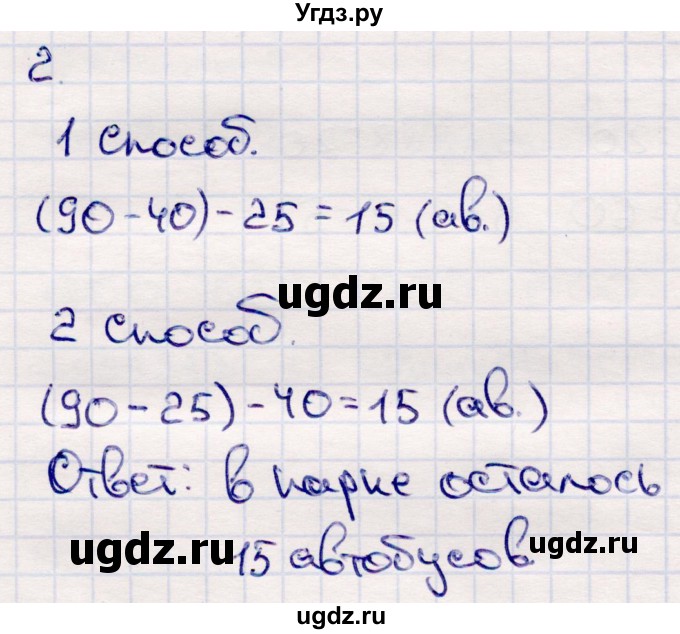 Угдз.ру
2.
1 способ.
(90-40)-25=15 (ав.)
ugdz.ru
2 способ.
(90-25)-40=15 (ав.)
Ответ: в парке осталось
ugdz.ru
ugdz.ru
15 автобусов
ugdz.ru